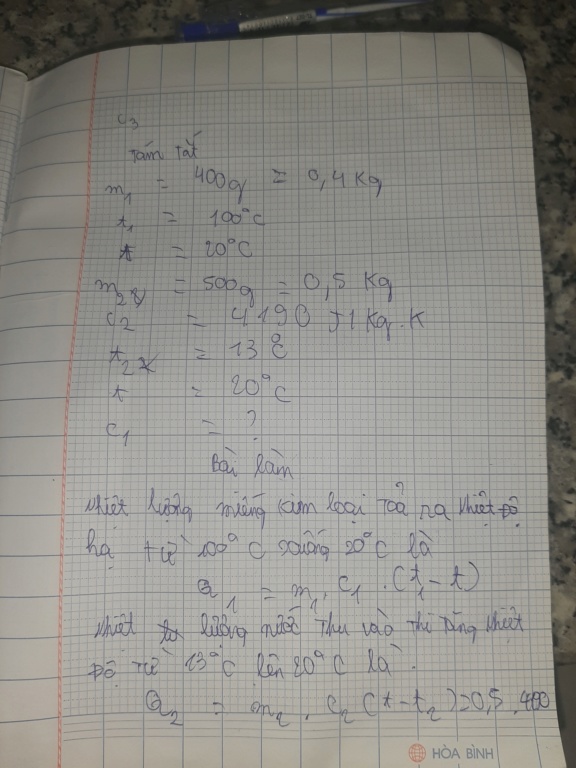 C3
Tóm Tắt
m1 = 400g = 0,4 Kg
t1 = 100°C
t = 20°C
m2 = 500g = 0,5 Kg
C2 = 4190 J/Kg.K
t2 = 13°C
t = 20°C
C1 = ?
Bài làm
Nhiệt lượng miếng kim loại Toả ra Nhiệt Độ
hạ từ 100°C xuống 20°C là
Q1 = m1. C1 .(t1 - t)
Nhiệt lượng nước Thu vào Thì Tăng Nhiệt
Độ từ 13°C lên 20°C là.
Q2 = m2. C2 (t-t2)=0,5.
HÒA BÌNH